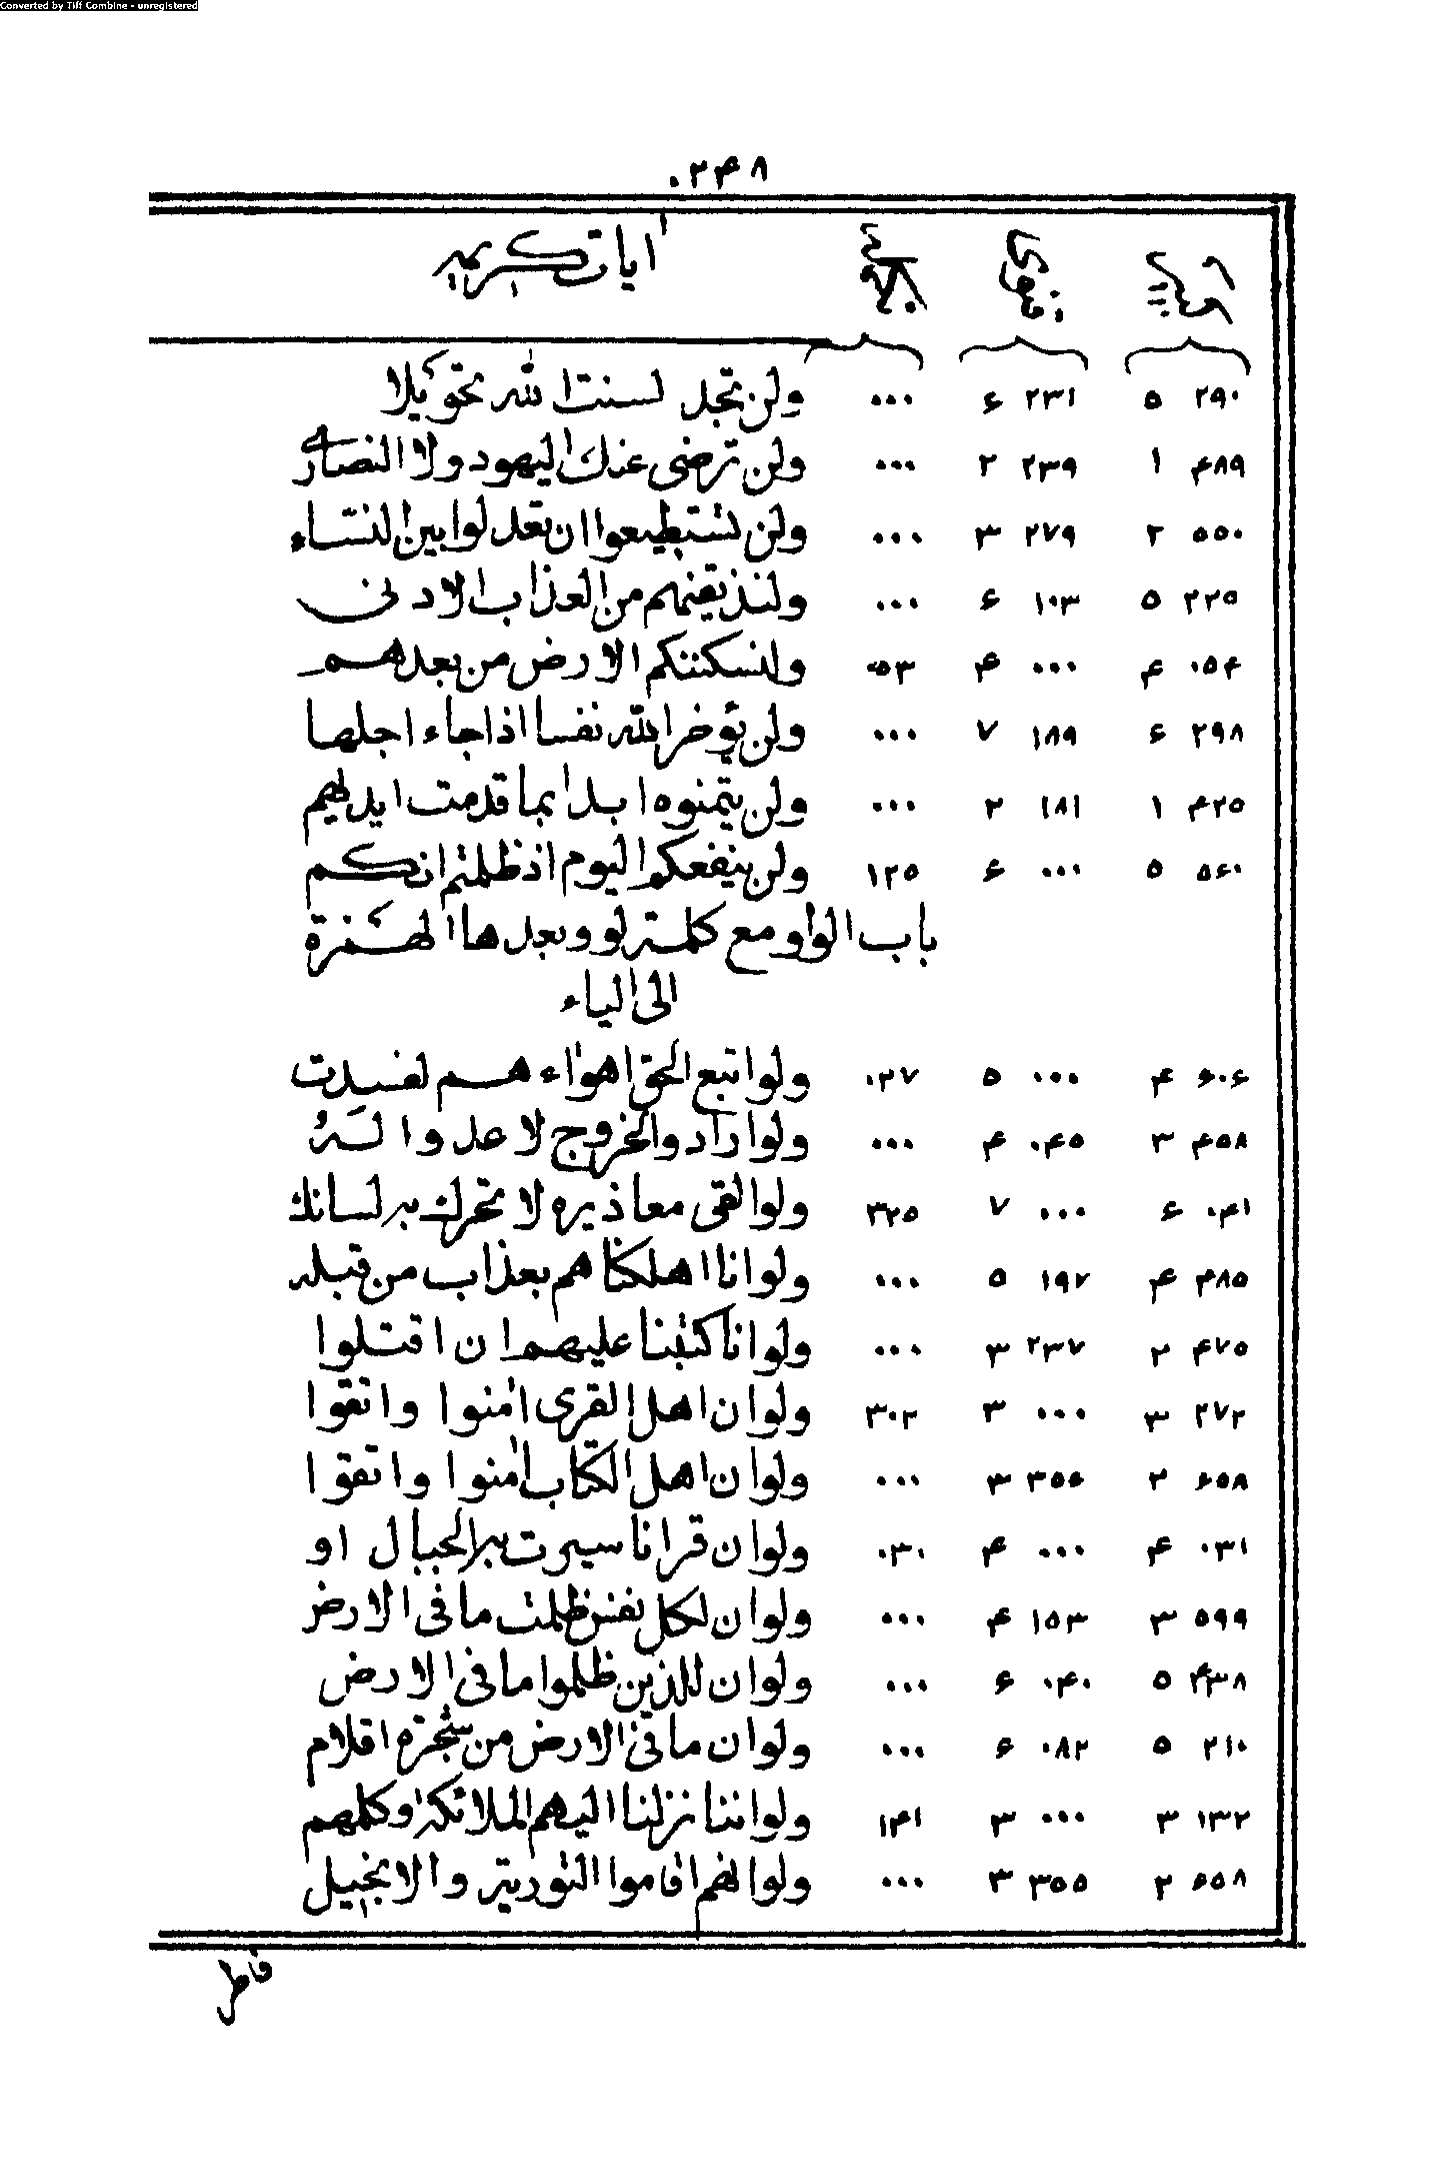 Converted by Tiff Combine - unregistered
۰۲۴۸
آيات كريمه
۲۹۰ ۵ ۲۳۱ ۶ ۰۰۰ ولن تجد لسنت الله تحويلا
۴۸۹ ۱ ۲۳۹ ۲ ۰۰۰ ولن ترضى عنك اليهود ولا النصارى
۵۵۰ ۲ ۲۷۹ ۳ ۰۰۰ ولن تستطيعوا ان تعدلوا بين النساء
۲۲۵ ۵ ۱۰۳ ۶ ۰۰۰ ولنذيقنهم من العذاب الادنى
۰۵۴ ۴ ۰۰۰ ۴ ۰۵۳ ولنسكننكم الارض من بعدهم
۲۹۸ ۶ ۱۸۹ ۷ ۰۰۰ ولن يؤخر الله نفسا اذا جاء اجلها
۴۲۵ ۱ ۱۸۱ ۲ ۰۰۰ ولن يتمنوه ابدا بما قدمت ايديهم
۵۶۰ ۵ ۰۰۰ ۶ ۱۲۵ ولن ينفعكم اليوم اذ ظلمتم انكم
باب الواو مع كلمة لو وبعدها الهمزة
الى الياء
۶۰۶ ۴ ۰۰۰ ۵ ۰۲۷ ولو اتبع الحق اهواءهم لفسدت
۴۵۸ ۳ ۰۴۵ ۴ ۰۰۰ ولو ارادوا الخروج لاعدوا له
۰۴۱ ۶ ۰۰۰ ۷ ۳۲۵ ولو القى معاذيره لا تحرك به لسانك
۴۸۵ ۴ ۱۹۷ ۵ ۰۰۰ ولو انا اهلكناهم بعذاب من قبله
۴۷۵ ۲ ۲۳۷ ۳ ۰۰۰ ولو انا كتبنا عليهم ان اقتلوا
۲۷۲ ۳ ۰۰۰ ۳ ۳۰۲ ولو ان اهل القرى امنوا واتقوا
۶۵۸ ۲ ۳۵۶ ۳ ۰۰۰ ولو ان اهل الكتاب امنوا واتقوا
۰۳۱ ۴ ۰۰۰ ۴ ۰۳۰ ولو ان قرانا سيرت به الجبال او
۵۹۹ ۳ ۱۵۳ ۴ ۰۰۰ ولو ان لكل نفس ظلمت ما فى الارض
۴۳۸ ۵ ۰۴۰ ۶ ۰۰۰ ولو ان للذين ظلموا ما فى الارض
۲۱۰ ۵ ۰۸۲ ۶ ۰۰۰ ولو ان ما فى الارض من شجرة اقلام
۱۳۲ ۳ ۰۰۰ ۳ ۱۴۱ ولو اننا نزلنا اليهم الملائكة وكلمهم
۶۵۸ ۲ ۳۵۵ ۳ ۰۰۰ ولو انهم اقاموا التورية والانجيل
فاطر